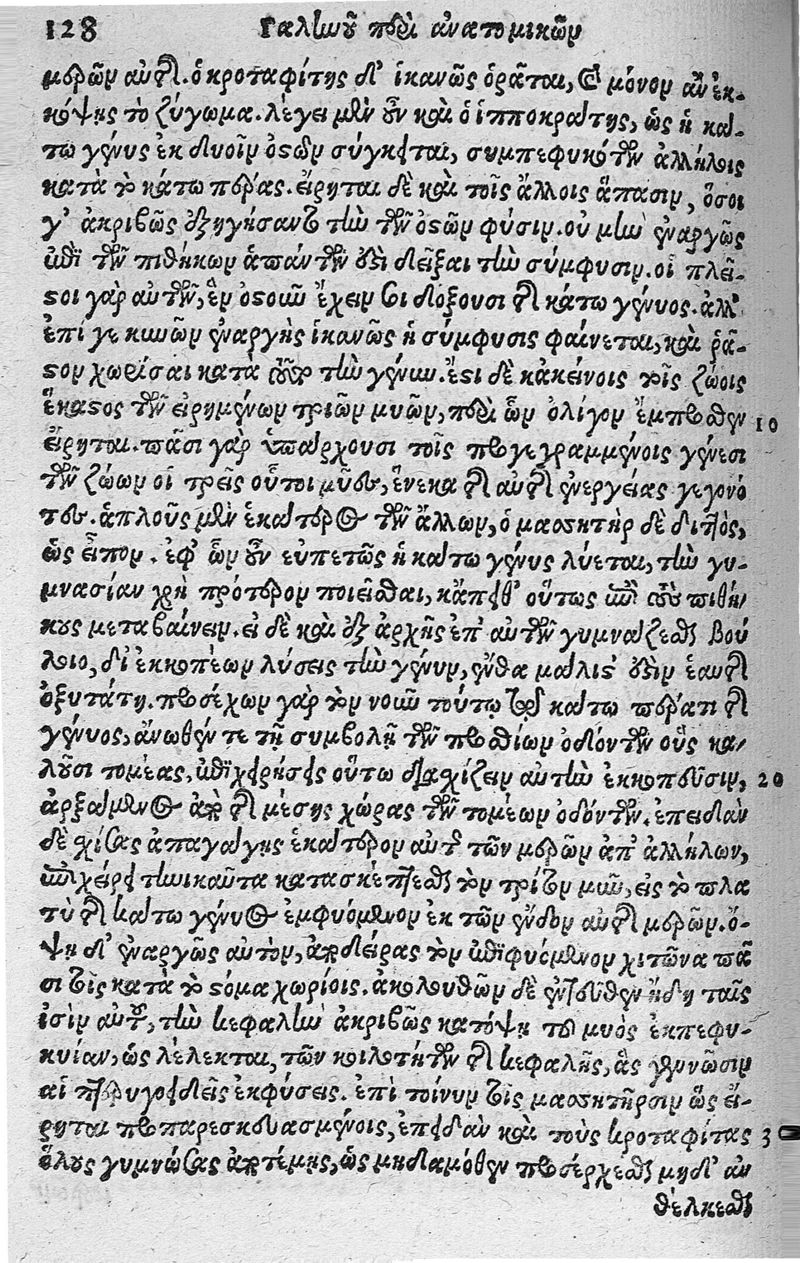 128 Γαληνοῦ περὶ ἀνατομικῶν
μερῶν αὐτοῦ. ὁ κροταφίτης δ' ἱκανῶς ὁρᾶται, καὶ μόνον ἂν ἐκ-
κόψῃς τὸ ζύγωμα. λέγει μὲν οὖν καὶ ὁ ἱπποκράτης, ὡς ἡ κά-
τω γένυς ἐκ δυοῖν ὀστῶν σύγκειται, συμπεφυκότων ἀλλήλοις
κατὰ τὸ κάτω πέρας. εἴρηται δὲ καὶ τοῖς ἄλλοις ἅπασιν, ὅσοι
γ' ἀκριβῶς ἐξηγήσαντο τὴν τῶν ὀστῶν φύσιν. οὐ μὴν ἐναργῶς
ἐπὶ τῶν πιθήκων ἁπάντων ἔστι δεῖξαι τὴν σύμφυσιν. οἱ πλεῖ-
στοι γὰρ αὐτῶν, ἓν ὀστοῦν ἔχειν σοι δόξουσι τοῦ κάτω γένυος. ἀλλ'
ἐπί γε κυνῶν ἐναργὴς ἱκανῶς ἡ σύμφυσις φαίνεται, καὶ ῥᾷ-
στον χωρίσαι κατὰ τοῦτον τὴν γένυν. ἔστι δὲ κἀκείνοις τοῖς ζώοις
ἕκαστος τῶν εἰρημένων τριῶν μυῶν, περὶ ὧν ὀλίγον ἔμπροσθεν 10
εἴρηται. πᾶσι γὰρ ὑπάρχουσι τοῖς προγεγραμμένοις γένεσι
τῶν ζώων οἱ τρεῖς οὗτοι μύες, ἕνεκα τοῦ αὐτοῦ ἐνεργείας γεγονό
τες. ἁπλοῦς μὲν ἑκάτερος τῶν ἄλλων, ὁ μασητὴρ δὲ διττὸς,
ὡς εἶπον. ἐφ' ὧν οὖν εὐπετῶς ἡ κάτω γένυς λύεται, τὴν γυ-
μνασίαν χρὴ πρότερον ποιεῖσθαι, κἄπειθ' οὕτως ἐπὶ τοὺς πιθή-
κους μεταβαίνειν. εἰ δὲ καὶ ἐξ ἀρχῆς ἐπ' αὐτῶν γυμνάζεσθαι βού
λοιο, δι' ἐκκοπέων λύσεις τὴν γένυν, ἔνθα μάλιστ' ἐστὶν ἑαυτοῦ
ὀξυτάτη. προσέχων γὰρ τὸν νοῦν τούτῳ τῷ κάτω πέρατι τοῦ
γένυος, ἄνωθέν τε τῇ συμβολῇ τῶν προσθίων ὀδόντων οὓς κα-
λοῦσι τομέας, ἐπιχειρήσεις οὕτω διασχίζειν αὐτὴν ἐκκοπεῦσιν, 20
ἀρξάμενος ἀπὸ τοῦ μέσης χώρας τῶν τομέων ὀδόντων. ἐπειδὰν
δὲ σχίσας ἀπαγάγῃς ἑκάτερον αὐτοῦ τῶν μερῶν ἀπ' ἀλλήλων,
ἐπιχείρει τηνικαῦτα κατασκέπτεσθαι τὸν τρίτον μῦν, εἰς τὸ πλα
τὺ τοῦ κάτω γένυος ἐμφυόμενον ἐκ τῶν ἔνδον αὐτοῦ μερῶν. ὄ-
ψῃ δ' ἐναργῶς αὐτὸν, ἀποδείρας τὸν ἐπιφυόμενον χιτῶνα πᾶ
σι τοῖς κατὰ τὸ στόμα χωρίοις. ἀκολουθῶν δὲ ἐντεῦθεν ἤδη ταῖς
ἰσὶν αὐτοῦ, τὴν κεφαλὴν ἀκριβῶς κατόψῃ τοῦ μυὸς ἐκπεφυ-
κυίαν, ὡς λέλεκται, τῶν κοιλοτήτων τοῦ κεφαλῆς, ἃς γεννῶσιν
αἱ πτερυγοειδεῖς ἐκφύσεις. ἐπὶ τοίνυν τοῖς μασητῆρσιν ὡς εἴ-
ρηται προπαρεσκευασμένοις, ἐπειδὰν καὶ τοὺς κροταφίτας 3
ὅλους γυμνώσας ἀποτέμῃς, ὡς μηδαμόθεν προσέρχεσθαι μηδ' ἀν
θέλκεσθαι